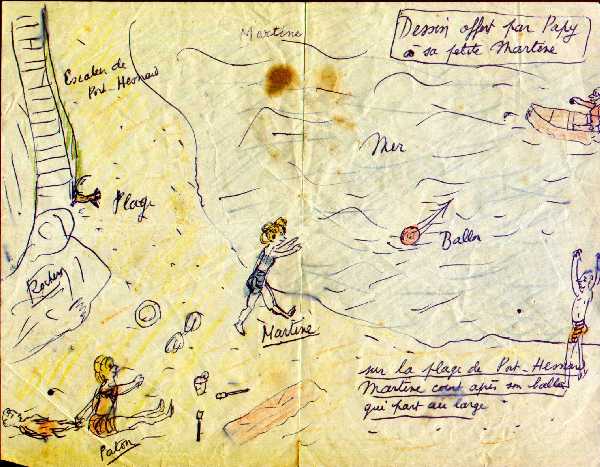 Martine
Dessin offert par Papy
à sa petite Martine
Escalier de
Port-Hesnard
Mer
Plage
Ballon
Rocher
Martine
sur la plage de Port-Hesnard
Martine court après son ballon
qui part au large